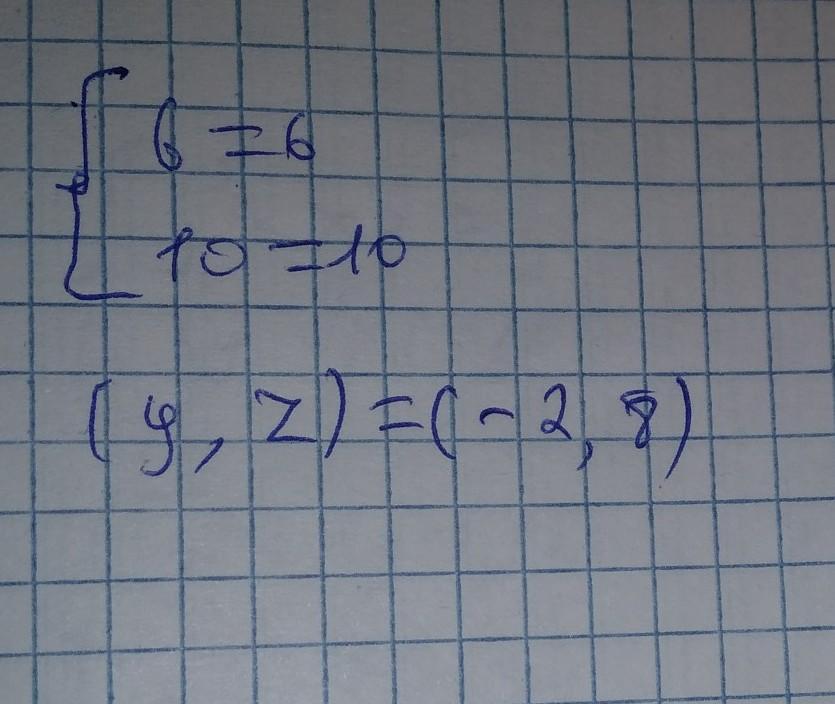 6 = 6
10 = 10
(y, z) = (-2, 8)